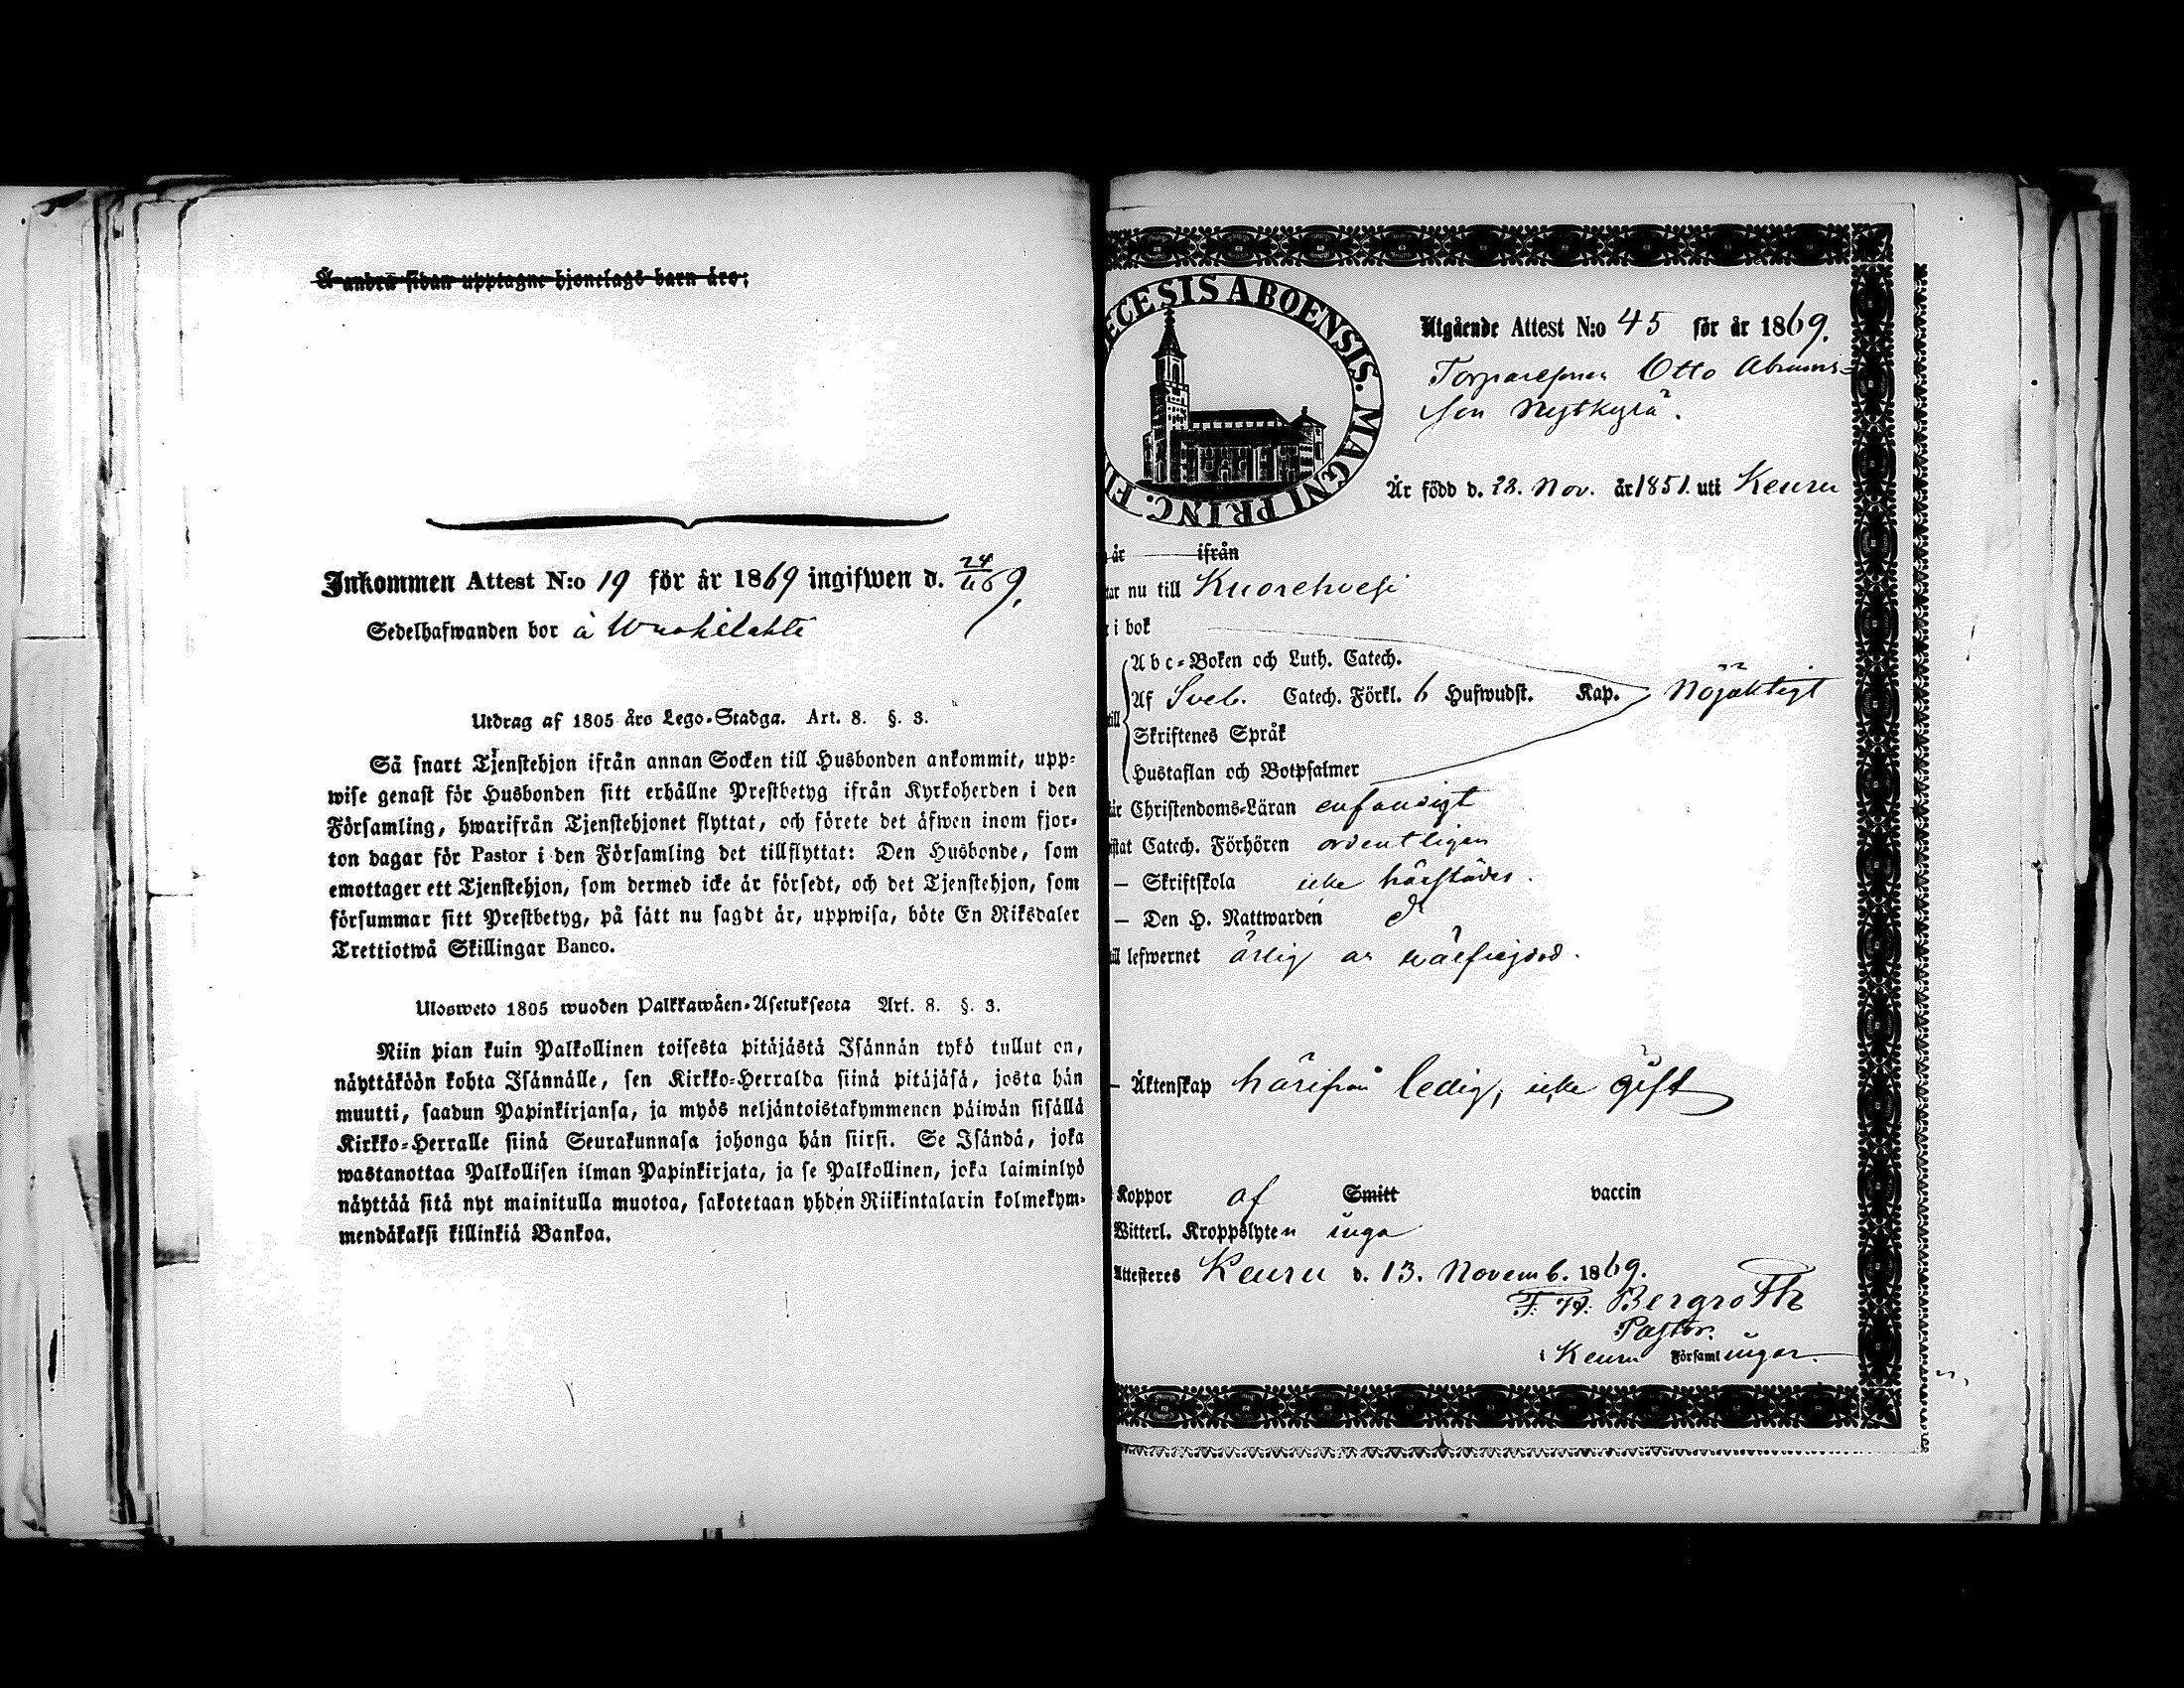 Å andra sidan upptagne hjonelags barn äro:
Inkommen Attest N:o 19 för år 1869 ingifwen d. 24/11 69.
Sedelhafwanden bor å Wuohilahti
Utdrag af 1805 års Lego-Stadga. Art. 8. §. 3.
Så snart Tjenstehjon ifrån annan Socken till Husbonden ankommit, upp-
wise genast för Husbonden sitt erhållne Prestbetyg ifrån Kyrkoherden i den
Församling, hwarifrån Tjenstehjonet flyttat, och förete det äfwen inom fjor-
ton dagar för Pastor i den Församling det tillflyttat: Den Husbonde, som
emottager ett Tjenstehjon, som dermed icke är försedt, och det Tjenstehjon, som
försummar sitt Prestbetyg, på sätt nu sagdt är, uppwisa, böte En Riksdaler
Trettiotwå Skillingar Banco.
Ulosweto 1805 wuoden Palkkawäen-Asetuksesta Art. 8. §. 3.
Niin pian kuin Palkollinen toisesta pitäjästä Isännän tykö tullut on,
näyttäköön kohta Isännälle, sen Kirkko-Herralda siinä pitäjäsä, josta hän
muutti, saadun Papinkirjansa, ja myös neljäntoistakymmenen päiwän sisällä
Kirkko-Herralle siinä Seurakunnasa johonga hän siirsi. Se Isändä, joka
wastanottaa Palkollisen ilman Papinkirjata, ja se Palkollinen, joka laiminlyö
näyttää sitä nyt mainitulla muotoa, sakotetaan yhden Riikintalarin kolmekym-
mendäkaksi killinkiä Bankoa.
ECESIS ABOENSIS. MAGNI PRINC. FI
Utgående Attest N:o 45 för år 1869.
Torparesonen Otto Abrams-
son Nytkyrä.
Är född d. 28. Nov. år 1851. uti Keuru
år ifrån
tar nu till Kuorehvesi
i bok
Abc-Boken och Luth. Catech.
Af Sveb. Catech. Förkl. 6 Hufwudst. Kap. Nöjaktigt
till
Skriftenes Språk
Hustaflan och Botpsalmer
är Christendoms-Läran enfaldigt
istat Catech. Förhören ordentligen
— Skriftskola icke härstädes.
— Den H. Nattwarden d:o
till lefwernet ärlig av wälfrejdad.
— Äktenskap härifrån ledig, icke gift
Koppor af Smitt vaccin
Witterl. Kroppslyten inga
Attesteres Keuru d. 13. Novemb. 1869.
F. W. Bergroth
Pastor.
i Keuru Församlingar.